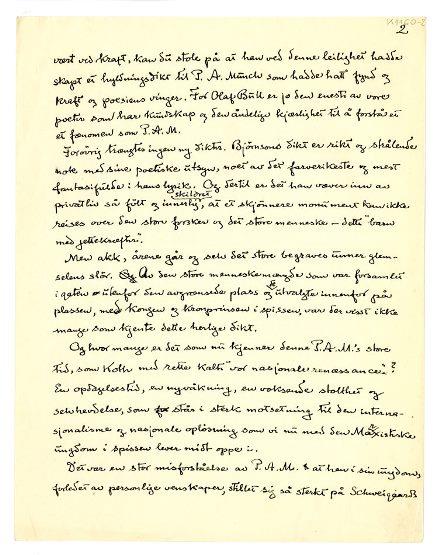 2
vært ved kraft, kan du stole på at han ved denne leilighet hadde
skapt et hyldningsdikt til P. A. Munch som hadde hatt fynd og
kraft og poesiens vinger. For Olaf Bull er jo den eneste av vore
poeter som har kundskap og den åndelige kjærlighet til å forstå et
et fænomen som P. A. M.
Forøvrig trængtes ingen ny diktis. Bjørnsons dikt er rikt og strålende
nok med sine poetiske utsyn, noet av det farverikeste og mest
fantasifulde i hans lyrik. Og dertil er det han væver inn av
skildret
privatliv så fölt og innerlig, at et skjönnere monument kan ikke
reises over den store forsker og det store menneske – dette "barn
med jettekræfter".
Men akk, årene går og selv det store begraves under glem-
selens slör. Av den store menneskemængde som var forsamlet
i gaten utenfor den avgrensede plass og de utvalgte innenfor på
plassen, med Kongen og Kronprinsen i spissen, var der visst ikke
mange som kjente dette herlige dikt.
Og hvor mange er det som nu kjenner denne P. A. M.'s store
tid, som Koht med rette kalte "vor nasjonale renæssance"?
En opdagelsestid, en nyvåkning, en voksende stolthet og
selvhevdelse, som står i sterk motsetning til den interna-
sjonalisme og nasjonale oplösning som vi nu med den Marxistiske
ungdom i spissen lever midt oppe i.
Det var en stor misforståelse av P. A. M. at han i sin ungdom,
forledet av personlige venskaper, stillet sig så sterkt på Schweigaards